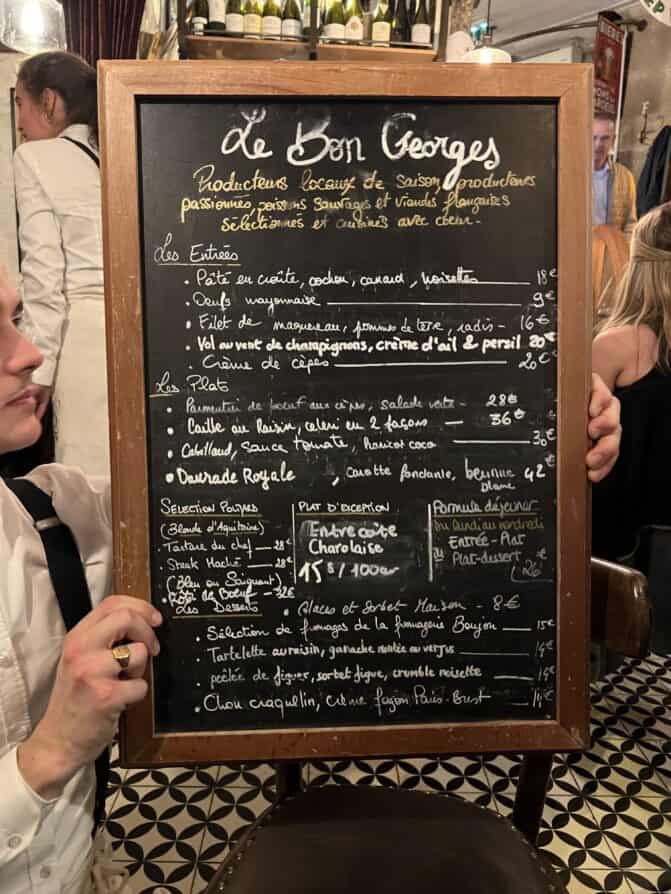 Le Bon Georges
Producteurs locaux de saison, producteurs
passionnés, poissons sauvages et viandes françaises
sélectionnés et cuisinés avec coeur.
Les Entrées
. Pâté en croûte, cochon, canard, noisettes 18€
. Oeufs mayonnaise 9€
. Filet de maquereau, pommes de terre, radis - 16€
. Vol au vent de champignons, crème d'ail & persil 20€
. Crème de cèpes 20€
Les Plats
. Parmentier de boeuf aux cèpes, salade verte - 28€
. Caille au Raisin, celeri en 2 façons — 36€
. Cabillaud, sauce tomate, haricot coco 36€
. Daurade Royale, carotte fondante, beurre blanc 42€
SELECTION POLMARD
(Blonde d'Aquitaine)
Tartare du chef — 28€
. Steak Haché — 28€
(Bleu ou Saignant)
. Rôti de Boeuf — 32€
PLAT D'EXCEPTION
Entre côte
Charolaise
15€/100gr
Formule déjeuner
Du lundi au vendredi
Entrée - Plat
Plat-dessert
26€
Les Desserts
. Glaces et Sorbet Maison - 8€
. Sélection de fromages de la fromagerie Beaujon — 15€
. Tartelette au raisin, ganache montée au verjus — 14€
. poêlée de figues, sorbet figue, crumble noisette — 14€
. Chou craquelin, crème façon Paris-Brest — 14€